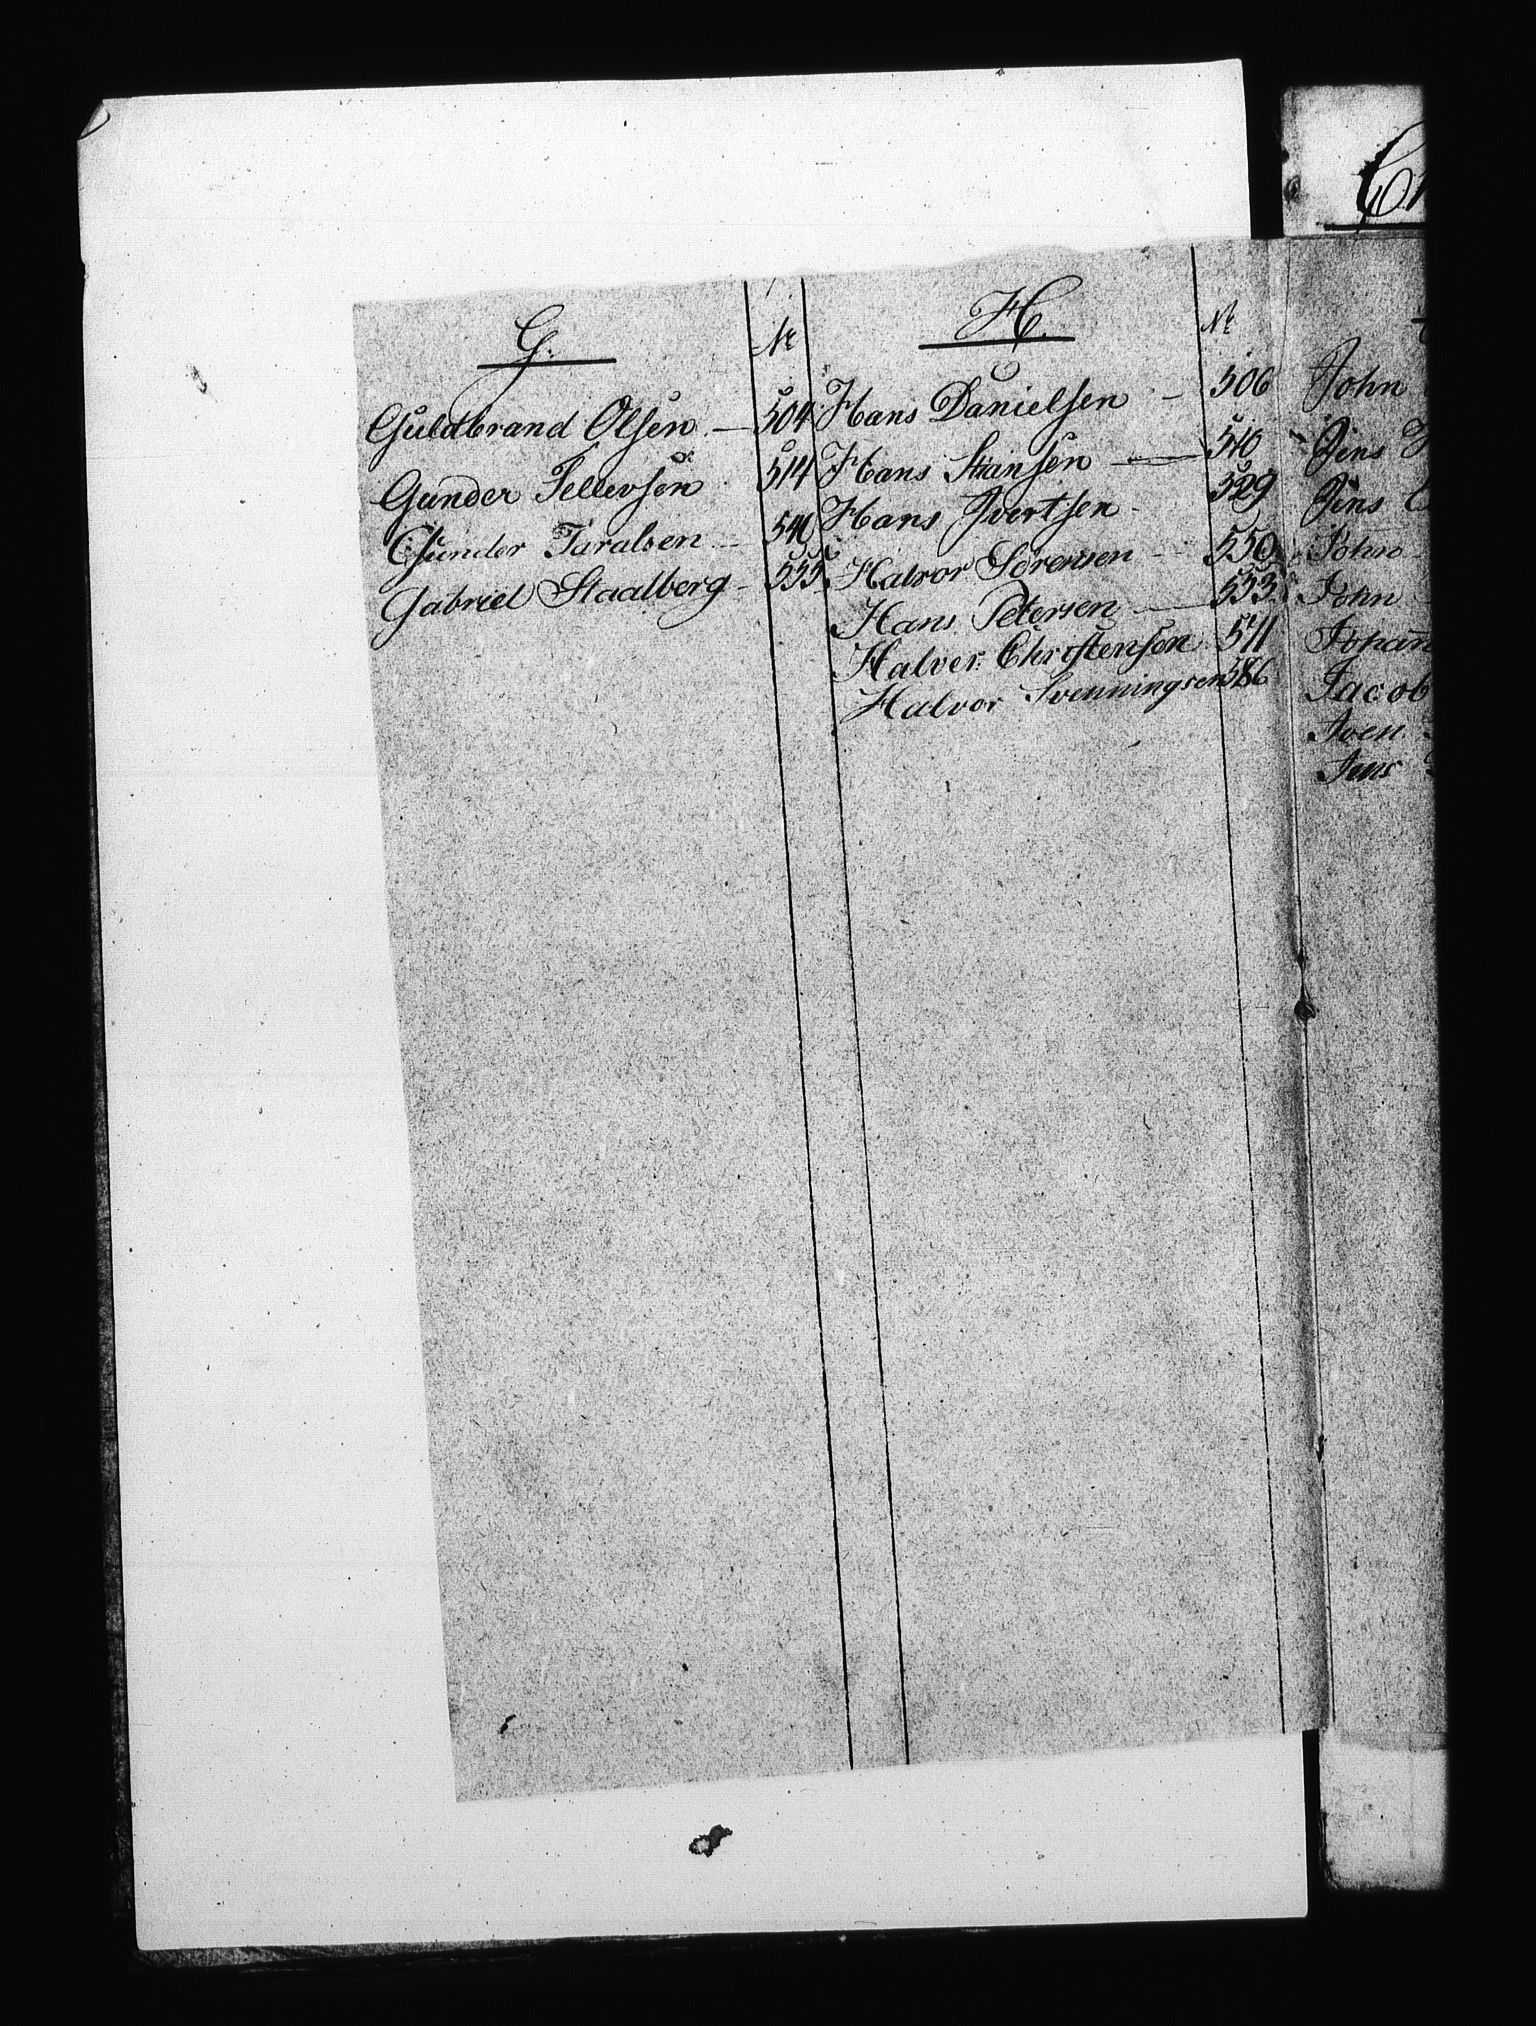 G.
No
Guldbrand Olsen — 504
Gunder Tellevsen 514
Gunder Taralsen — 540
Gabriel Staalberg — 555
H.
No
Hans Danielsen — 506
Hans Stiansen — 510
Hans Ivertsen - 529
Halvor Sörensen — 550
Hans Petersen — 553
Halver Christensen 571
Halvor Svenningsen 586
John
Jens
Jens
John
John
Johan
Jacob
Iven
Jens